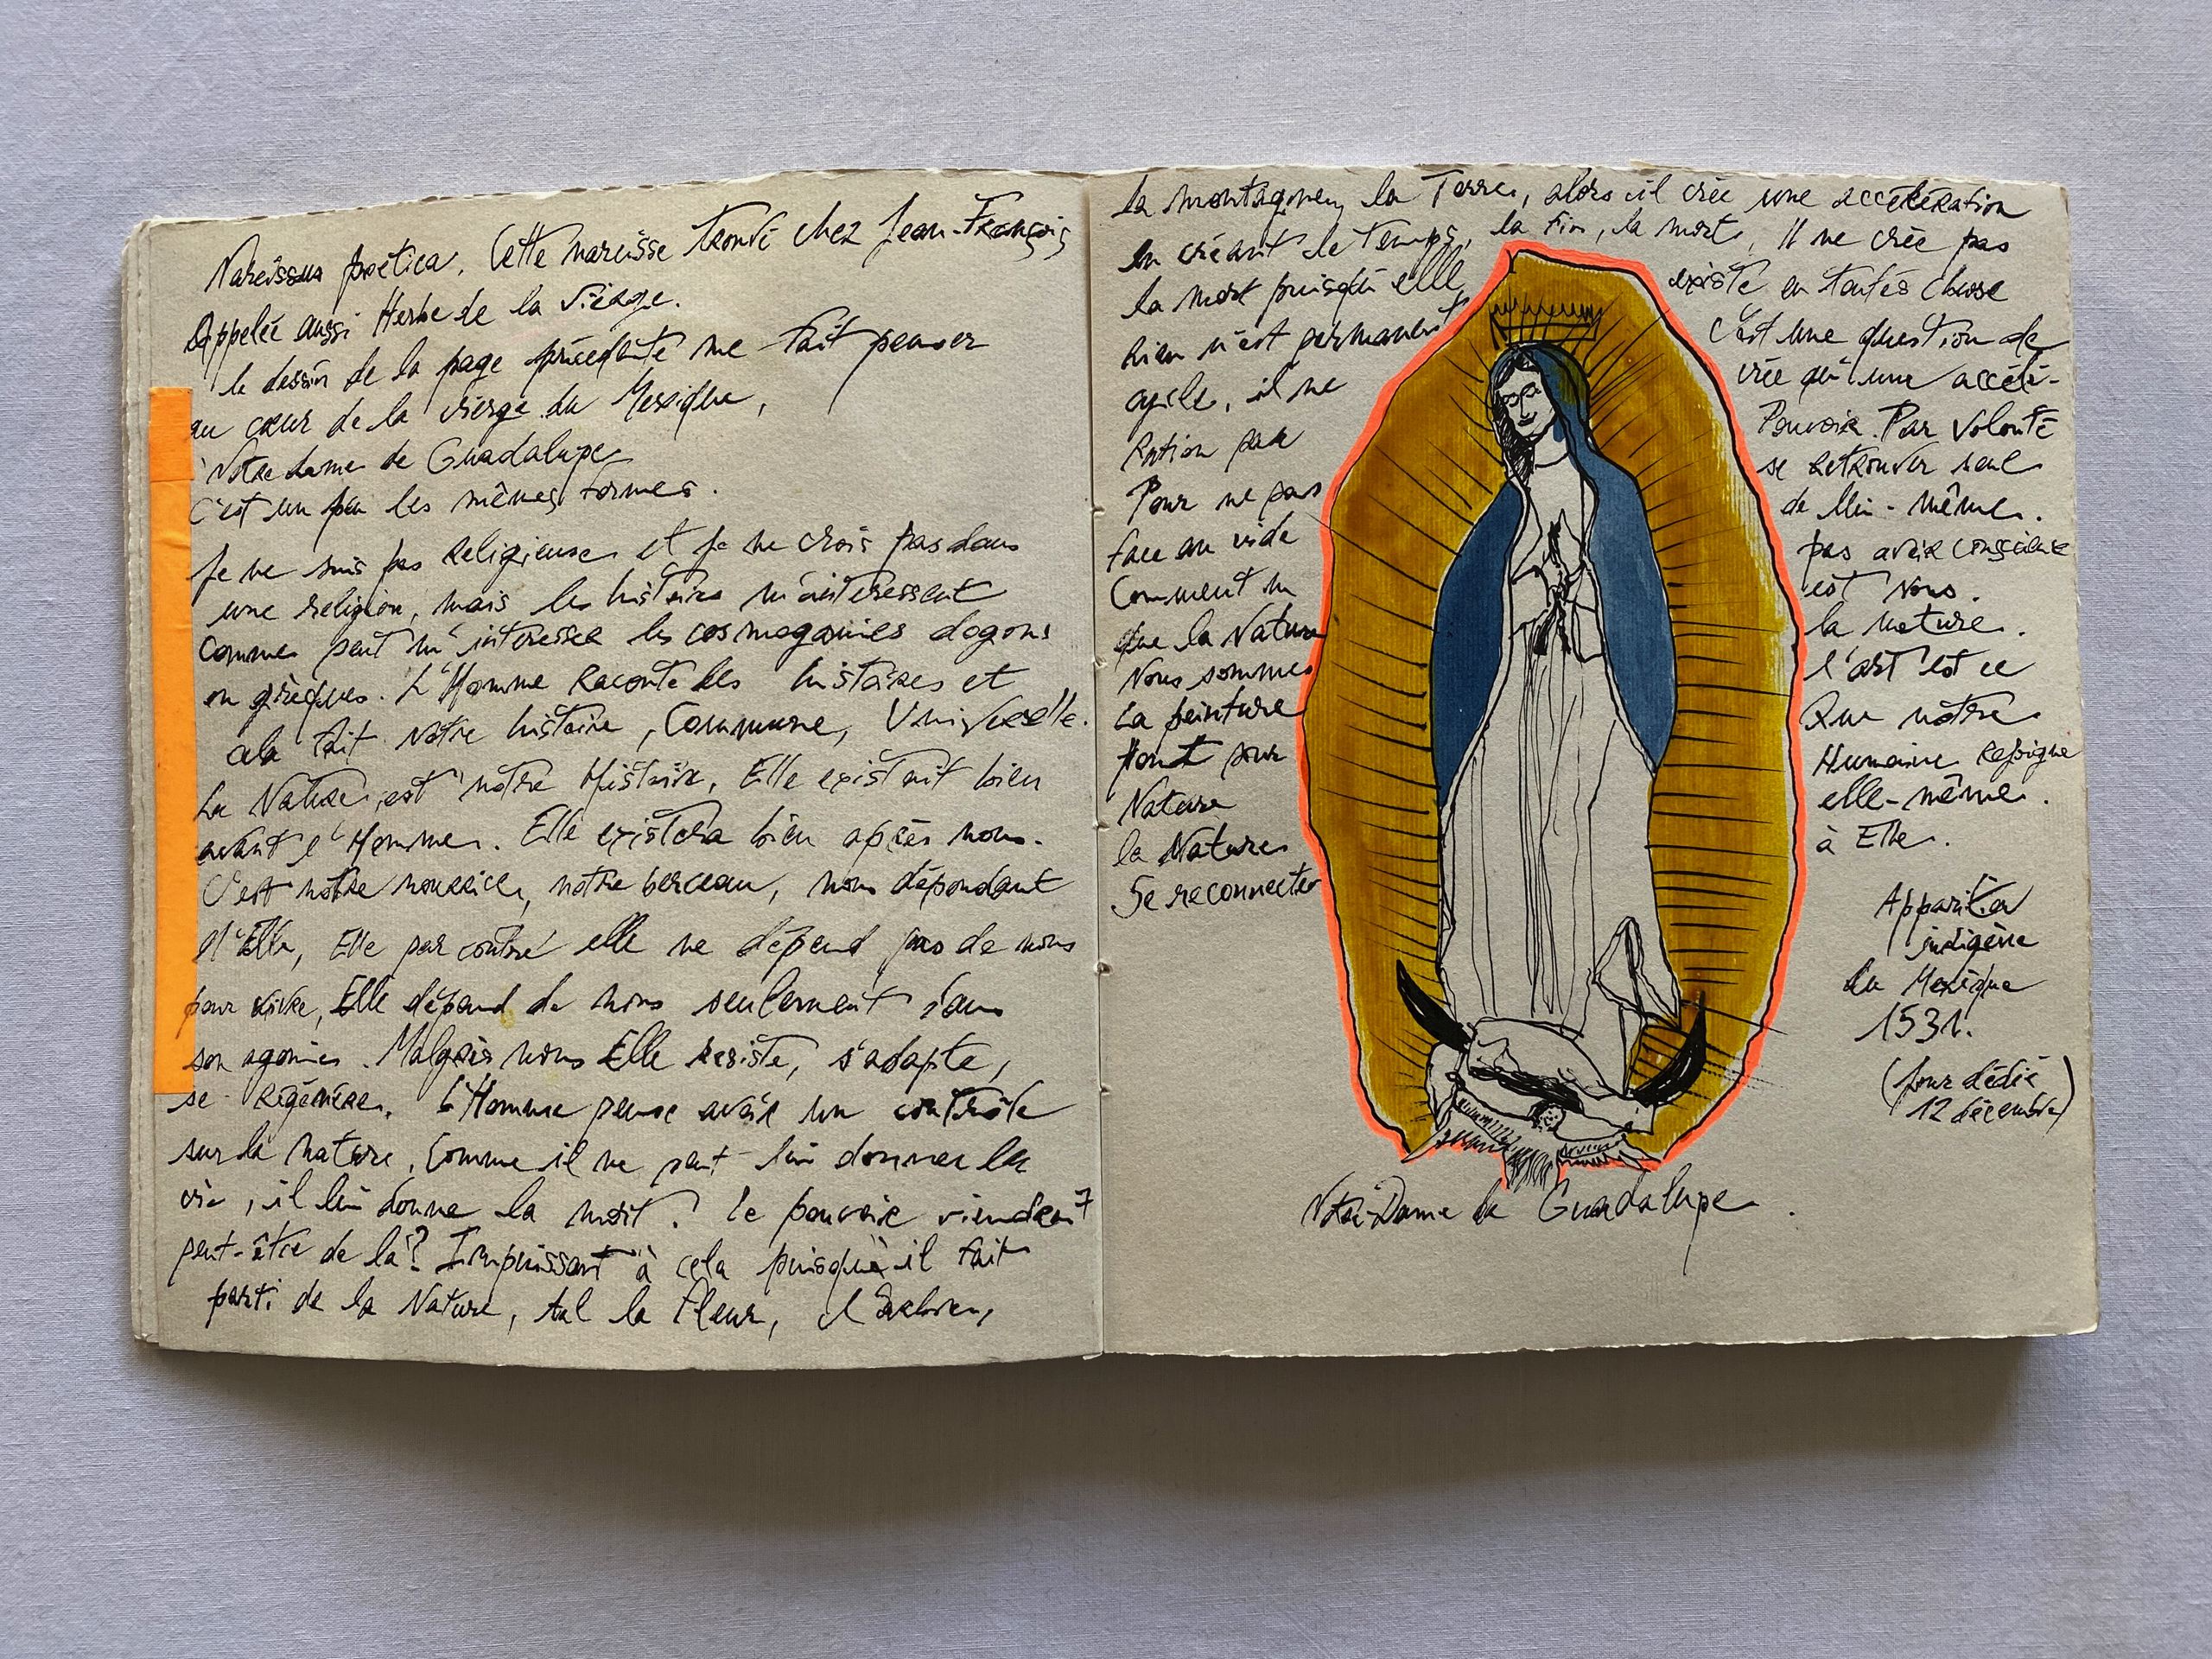 Narcissus poetica. Cette narcisse trouvé chez Jean-François
Appelée aussi Herbe de la Vierge.
le dessin de la page précédente me fait penser
au cœur de la vierge du Mexique,
Notre dame de Guadalupe
C'est un peu les mêmes formes.
Je ne suis pas Religieuse et je ne crois pas dans
une religion, mais les histoires m'intéressent
comme peut m'intéresser les cosmogonies dogons
ou grèques. L'Homme Raconte des histoires et
cela fait notre histoire, Commune, Universelle.
La Nature est notre Histoire, Elle existait bien
avant l'Homme. Elle existera bien après nous.
C'est notre nourrice, notre berceau, nous dépendant
d'Elle, Elle par contre elle ne dépend pas de nous
pour vivre, Elle dépend de nous seulement dans
son agonie. Malgrès nous Elle résiste, s'adapte,
se Régénère. L'Homme pense avoir un contrôle
sur la nature, Comme il ne peut lui donner la
vie, il lui donne la mort. Le pouvoir viendrait
peut-être de là? Impuissant à cela puisqu'il fait
parti de la Nature, tel la Fleur, l'arbre,
la montagne, la Terre, alors il crée une accélération
en créant le temps, la fin, la mort, Il ne crée pas
la mort puisqu'elle existe en toutes chose
Rien n'est permanent C'est une question de
cycle, il ne crée qu'une accélé-
Ration par Pouvoir. Par Volonté
Pour ne pas se Retrouver seul
face au vide de lui-même.
Comment ne pas avoir conscience
que la Nature est Nous.
Nous sommes la nature.
La peinture l'art est ce
Pont pour Que notre
Nature Humaine Rejoigne
la Nature elle-même.
Se reconnecter à Elle.
Apparition
indigène
du Mexique
1531.
(jour dédié
12 décembre)
Notre-Dame de Guadalupe.